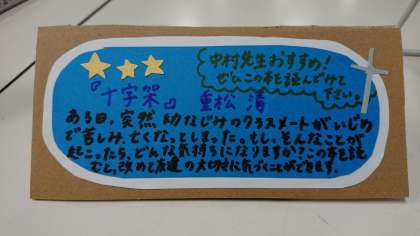 中村先生おすすめ!
ぜひこの本を読んでみて
下さい。
『十字架』 重松 清
ある日、突然 幼なじみのクラスメートがいじめ
で苦しみ、亡くなってしまった。もし、そんなことが
起こったら、どんな気持ちになりますか?この本を読
むと、改めて友達の大切さに気づくことができます。